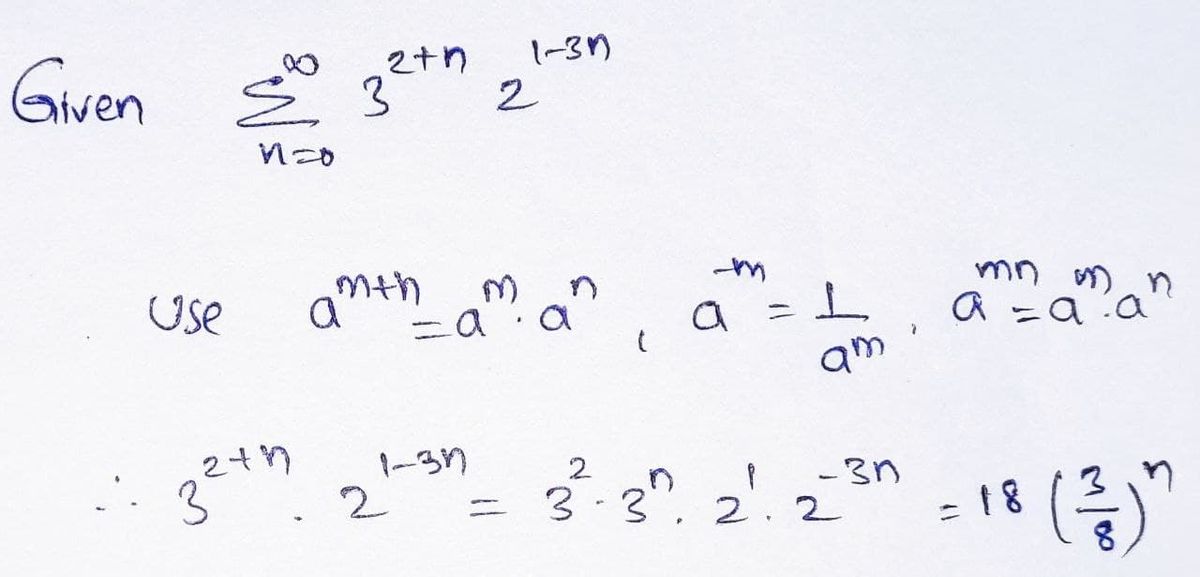 Given ∑_{n=0}^{∞} 3^{2+n} 2^{1-3n}
Use a^{m+n} = a^m . a^n , a^{-m} = 1/a^m , a^{mn} = a^m . a^n
∴ 3^{2+n} . 2^{1-3n} = 3^2 . 3^n . 2^1 . 2^{-3n} = 18 (3/8)^n